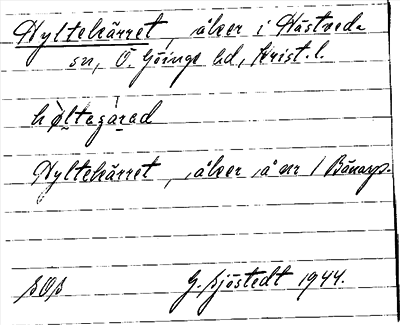 Hyltekärret, åker i Hästveda
sn, Ö. Göinge hd, Krist. l.
hø̀ltagárad
Hyltekärret, åker å nr 1 Bånarp.
SOS G. Sjöstedt 1944.